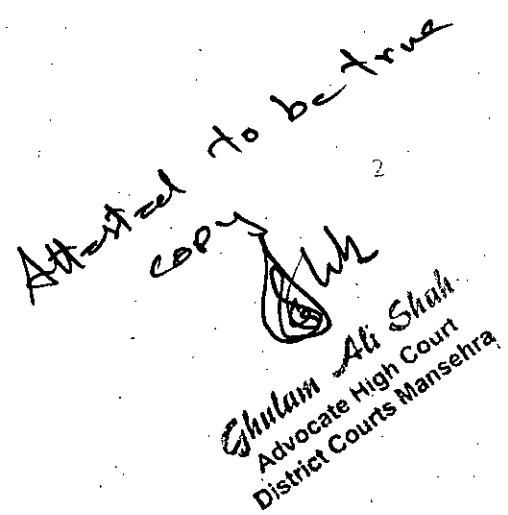 Attested to be true
copy
2
Ghulam Ali Shah
Advocate High Court
District Courts Mansehra